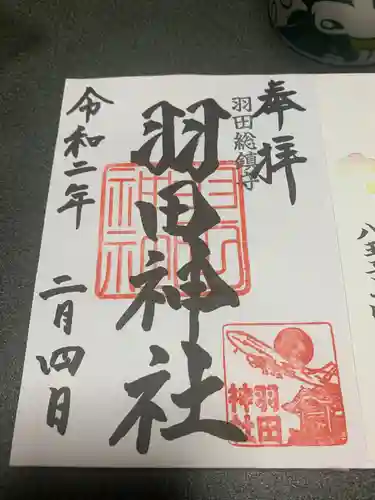 奉拝
羽田総鎮守
羽田神社
令和二年
二月四日
羽田
神社
羽田
神社